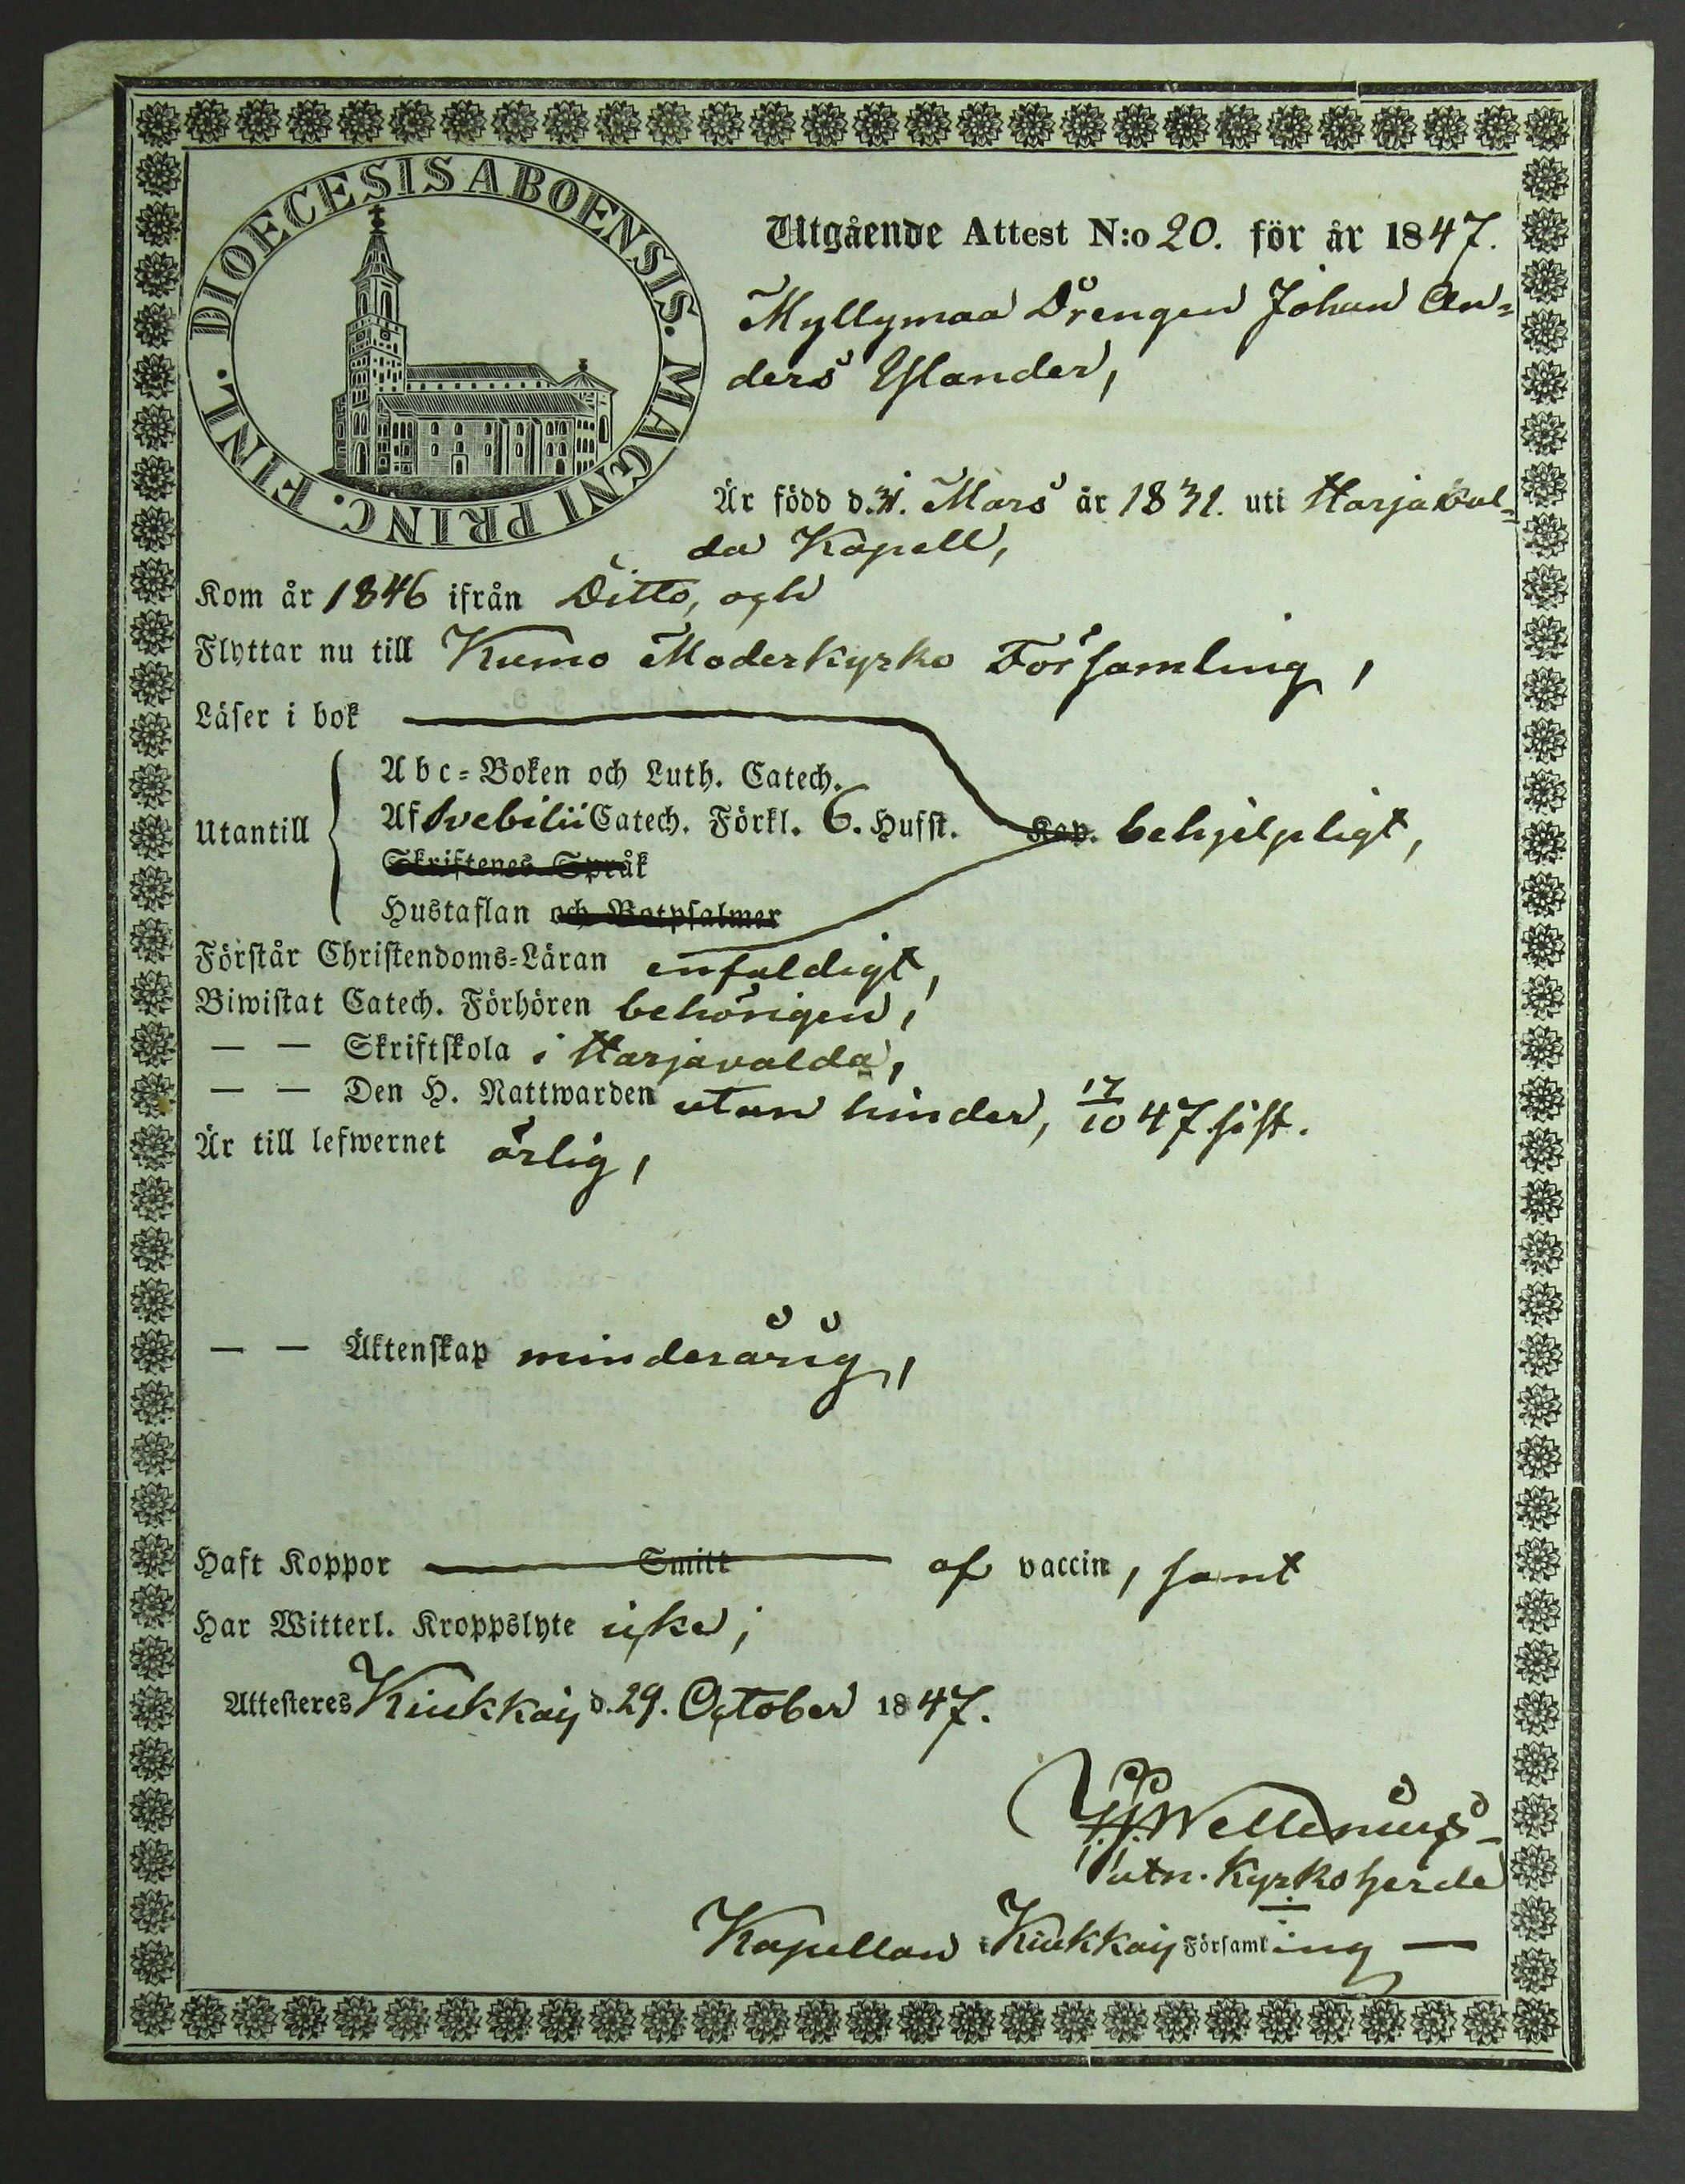 DIOECESIS ABOENSIS. MAGNI PRINC. FINL.
Utgående Attest N:o 20. för år 1847.
Myllymaa Drengen Johan An=
ders Yslander,
Är född d. 31. Mars år 1831. uti Harjaval=
da Kapell,
Kom år 1846 ifrån Ditto, och
Flyttar nu till Kumo Moderkyrko Församling,
Läser i bok
Abc=Boken och Luth. Catech.
Utantill Af Svebilii Catech. Förkl. 6. Hufst. Kap. behjelpligt,
Skriftenes Språk
Hustaflan och Botpsalmer
Förstår Christendoms=Läran enfaldigt,
Biwistat Catech. Förhören behörigen,
— — Skriftskola i Harjavalda,
— — Den H. Nattwarden utan hinder, 17/10 47 sist.
Är till lefwernet ärlig,
— — Äktenskap minderårig,
Haft Koppor Smitt af vaccin, samt
Har Witterl. Kroppslyte icke;
Attesteras Kiukkais d. 29. October 1847.
Wellenius
utn. Kyrkoherde
Kapellan i Kiukkais Församling —